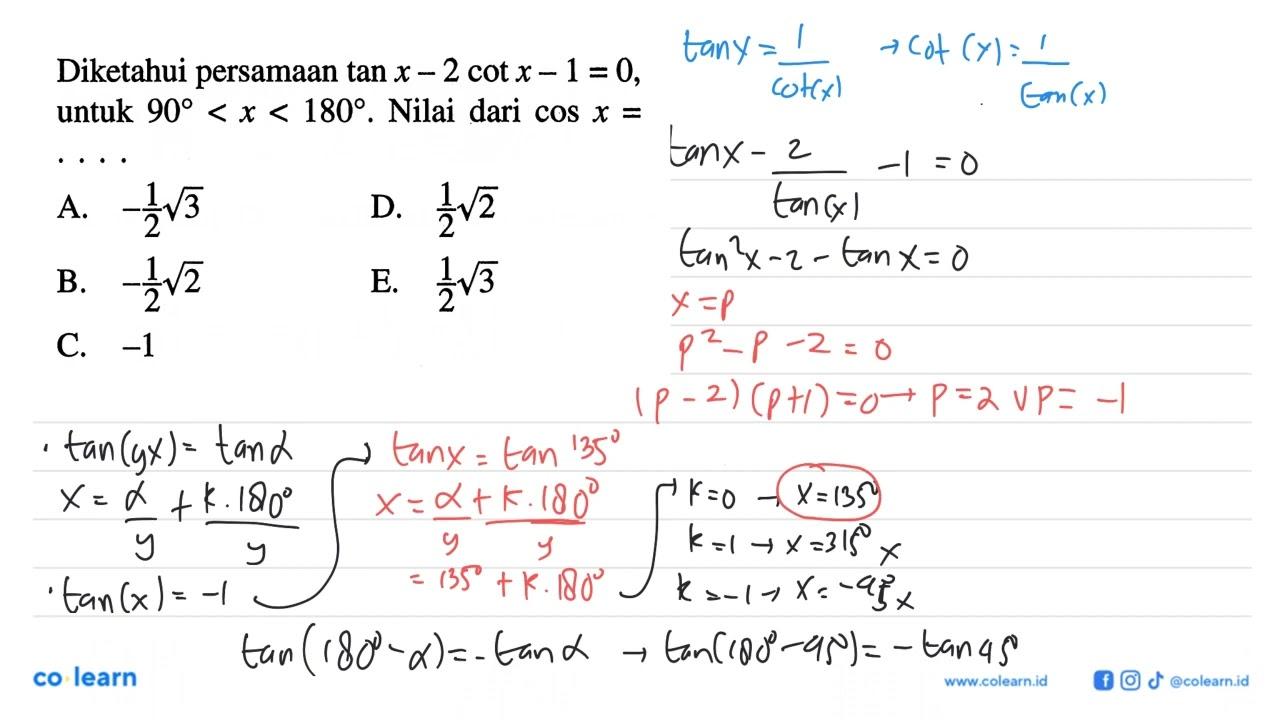 Diketahui persamaan tan x – 2 cot x – 1 = 0,
untuk 90° < x < 180°. Nilai dari cos x =
. . . .
A. -1/2√3
D. 1/2√2
B. -1/2√2
E. 1/2√3
C. –1
tan x = 1/cot(x) → cot (x) = 1/tan(x)
tan x - 2/tan(x) - 1 = 0
tan²x - 2 - tan x = 0
x = p
p² - p - 2 = 0
(p - 2) (p+1) = 0 → p = 2 ∨ p = -1
· tan(yx) = tan α
x = α/y + k.180°/y
· tan(x) = -1
tan x = tan 135°
x = α/y + k.180°/y
= 135° + k.180°
k=0 → x = 135°
k=1 → x = 315° x
k=-1 → x = -45° x
tan(180° - α) = -tan α → tan(180° - 45°) = -tan 45°
co learn
www.colearn.id
@colearn.id